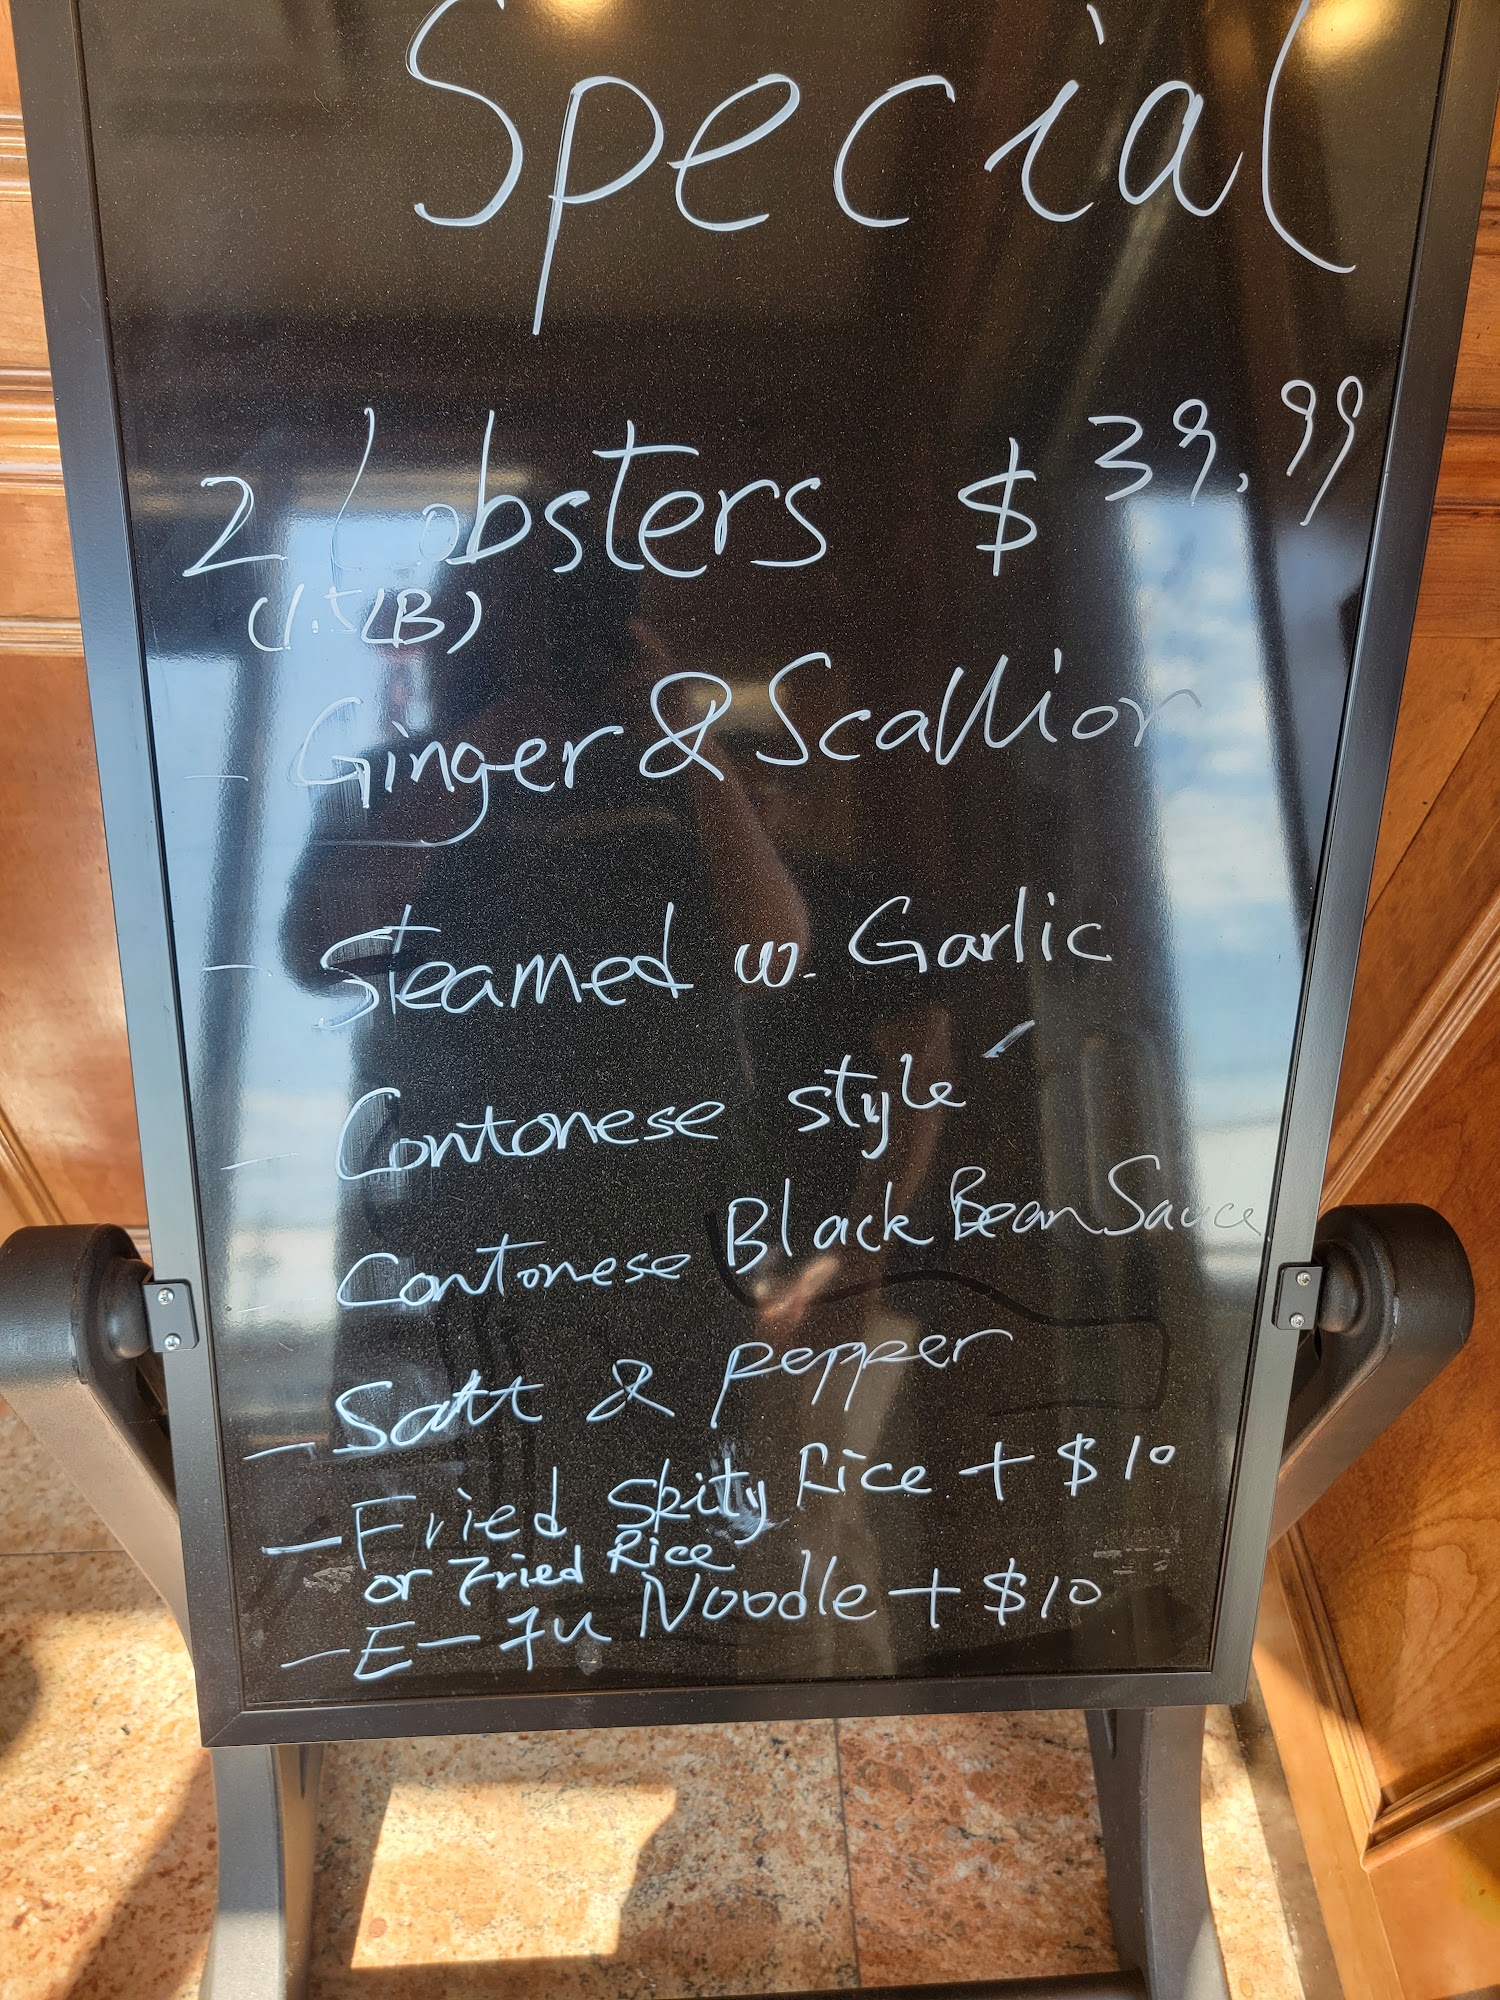 Special
2 Lobsters $39.99
(1.5LB)
- Ginger & Scallion
- Steamed w. Garlic
- Contonese style
- Contonese Black Bean Sauce
- Satt & pepper
- Fried Skity Rice + $10
or Fried Rice
- E-Fu Noodle + $10